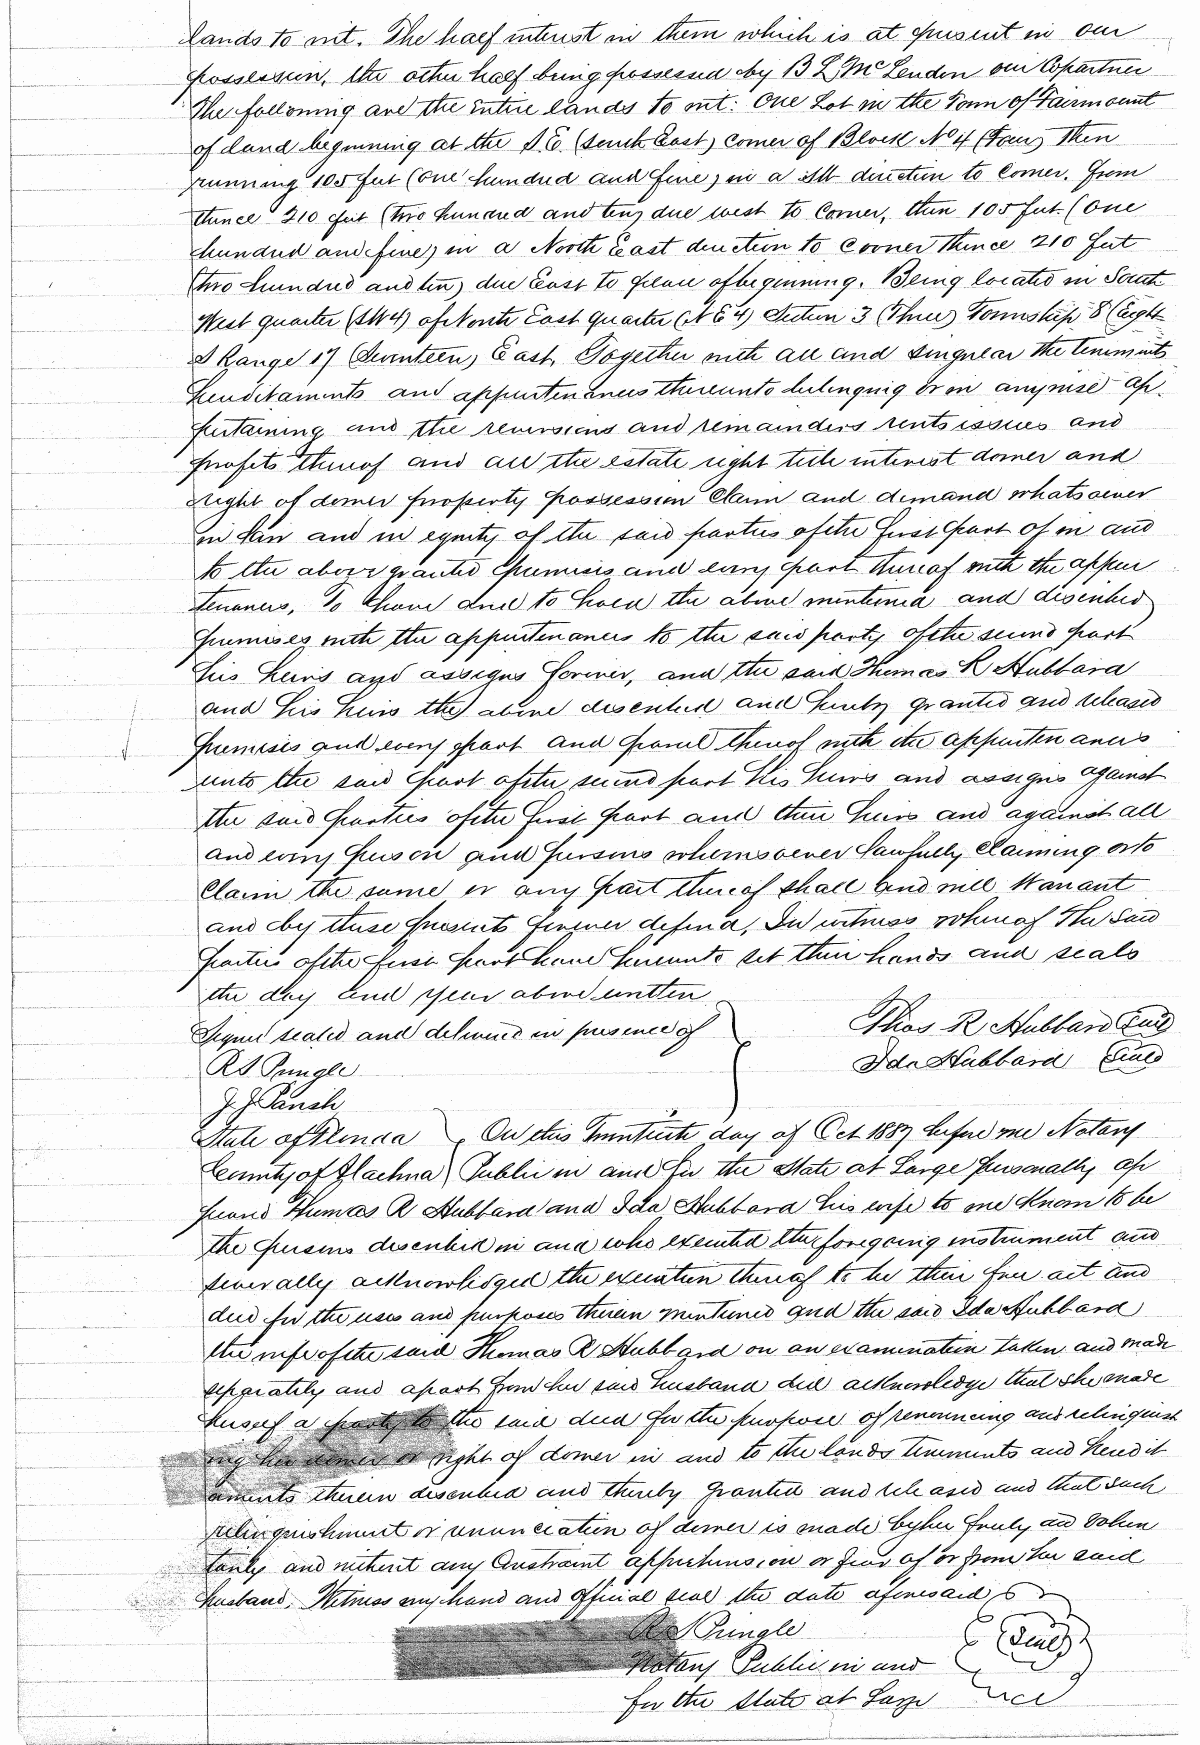 lands to wit. The half interest in them which is at present in our
possession, the other half being possessed by B L McLendon our Copartner
The following are the entire lands to wit: One Lot in the Town of Fairmount
of land beginning at the S.E. (South East) corner of Block No 4 (Four) Then
running 105 feet (one hundred and five) in a SW direction to corner. From
thence 210 feet (two hundred and ten) due west to corner, then 105 feet (one
hundred and five) in a North East direction to corner thence 210 feet
(two hundred and ten) due East to place of beginning. Being located in South
West quarter (SW4) of North East quarter (N E 4) Section 3 (Three) Township 8 (Eight
S Range 17 (Seventeen) East, Together with all and singular the tenements
hereditaments and appurtenances thereunto belonging or in anywise ap-
pertaining and the reversions and remainders rents issues and
profits thereof and all the estate right title interest dower and
right of dower property possession claim and demand whatsoever
in law and in equity of the said parties of the first part of in and
to the above granted premises and every part thereof with the appur
tenances, To have and to hold the above mentioned and described
premises with the appurtenances to the said party of the second part
his heirs and assigns forever, and the said Thomas R Hubbard
and his heirs the above described and hereby granted and released
premises and every part and parcel thereof with the appurtenances
unto the said part of the second part his heirs and assigns against
the said parties of the first part and their heirs and against all
and every person and persons whomsoever lawfully claiming or to
claim the same or any part thereof shall and will Warrant
and by these presents forever defend, In witness whereof the said
parties of the first part have hereunto set their hands and seals
the day and year above written
Signed sealed and delivered in presence of
Thos R Hubbard (Seal)
R S Pringle
Ida Hubbard (Seal)
J. J. Parish
State of Florida } On this Twentieth day of Oct 1887 before me Notary
County of Alachua } Public in and for the State at Large personally ap
peared Thomas R Hubbard and Ida Hubbard his wife to me known to be
the persons described in and who executed the foregoing instrument and
severally acknowledged the execution thereof to be their free act and
deed for the uses and purposes therein mentioned and the said Ida Hubbard
the wife of the said Thomas R Hubbard on an examination taken and made
separately and apart from her said husband did acknowledge that she made
herself a party to the said deed for the purpose of renouncing and relinquish
ing her dower or right of dower in and to the lands tenements and heredit
aments therein described and thereby granted and released and that such
relinquishment or renunciation of dower is made by her freely and volun
tarily and without any constraint apprehension or fear of or from her said
husband. Witness my hand and official seal the date aforesaid
R S Pringle
(Seal)
Notary Public in and
for the State at Large